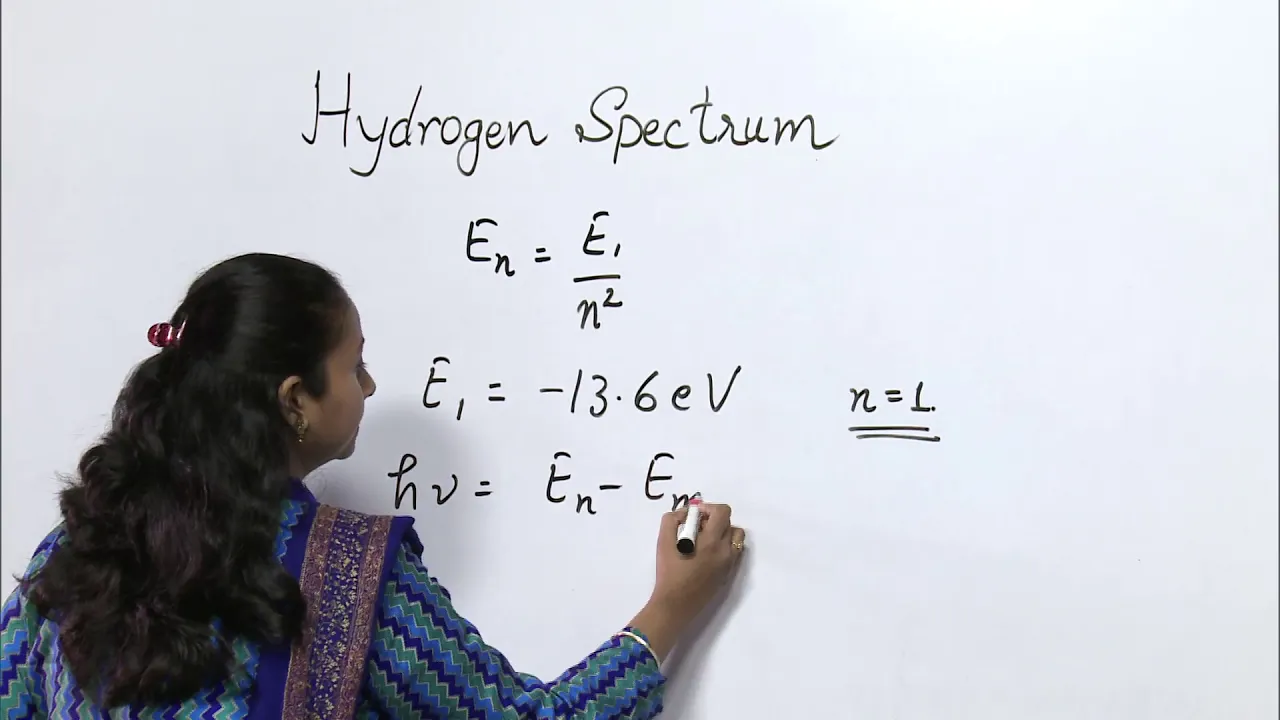 Hydrogen Spectrum
Eₙ = E₁/n²
E₁ = -13.6 eV
n = 1.
hν = Eₙ - Eₘ